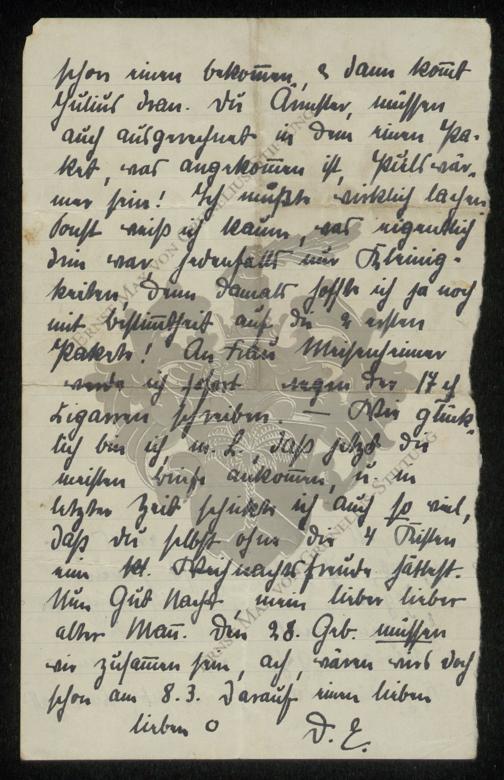 schon einen bekommen, & dann kommt
Julius dran. Du Ärmster, müssen
auch ausgerechnet in dem einen Pa-
ket, was angekommen ist, Pulswär-
mer sein! Ich mußte wirklich lachen
Sonst weiß ich kaum, was eigentlich
drin war. Jedenfalls nur Kleinig-
keiten, denn damals hoffte ich ja noch
mit bestimmtheit auf die 2 ersten
Pakete! An Frau Meisenheimer
werde ich sofort wegen der 17
Zigarren schreiben. — Wie glück-
lich bin ich m. L., daß jetzt die
meisten Briefe ankommen, u. in
letzter Zeit schickte ich auch so viel,
daß du selbst ohne die 4 Kisten
eine kl. Weihnachtsfreude hättest.
Nun Gut Nacht mein lieber lieber
alter Mann. Den 28. Geb. müssen
wir zusammen sein, ach, wären wir doch
schon am 8.3. Darauf einen lieben
lieben o D. E.
ERNST MAX VON GRUNELIUS-STIFTUNG
ERNST MAX VON GRUNELIUS-STIFTUNG